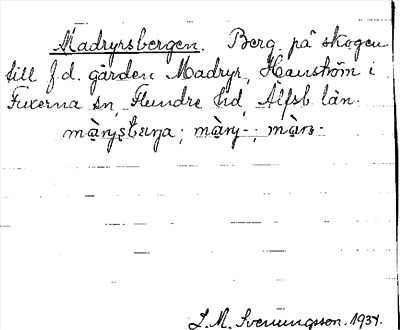 Madryrsbergen. Berg på skogen
till f.d. gården Madryr, Hanström i
Fuxerna sn, Flundre hd, Älfsb. län.
S. M. Svenungsson. 1934.